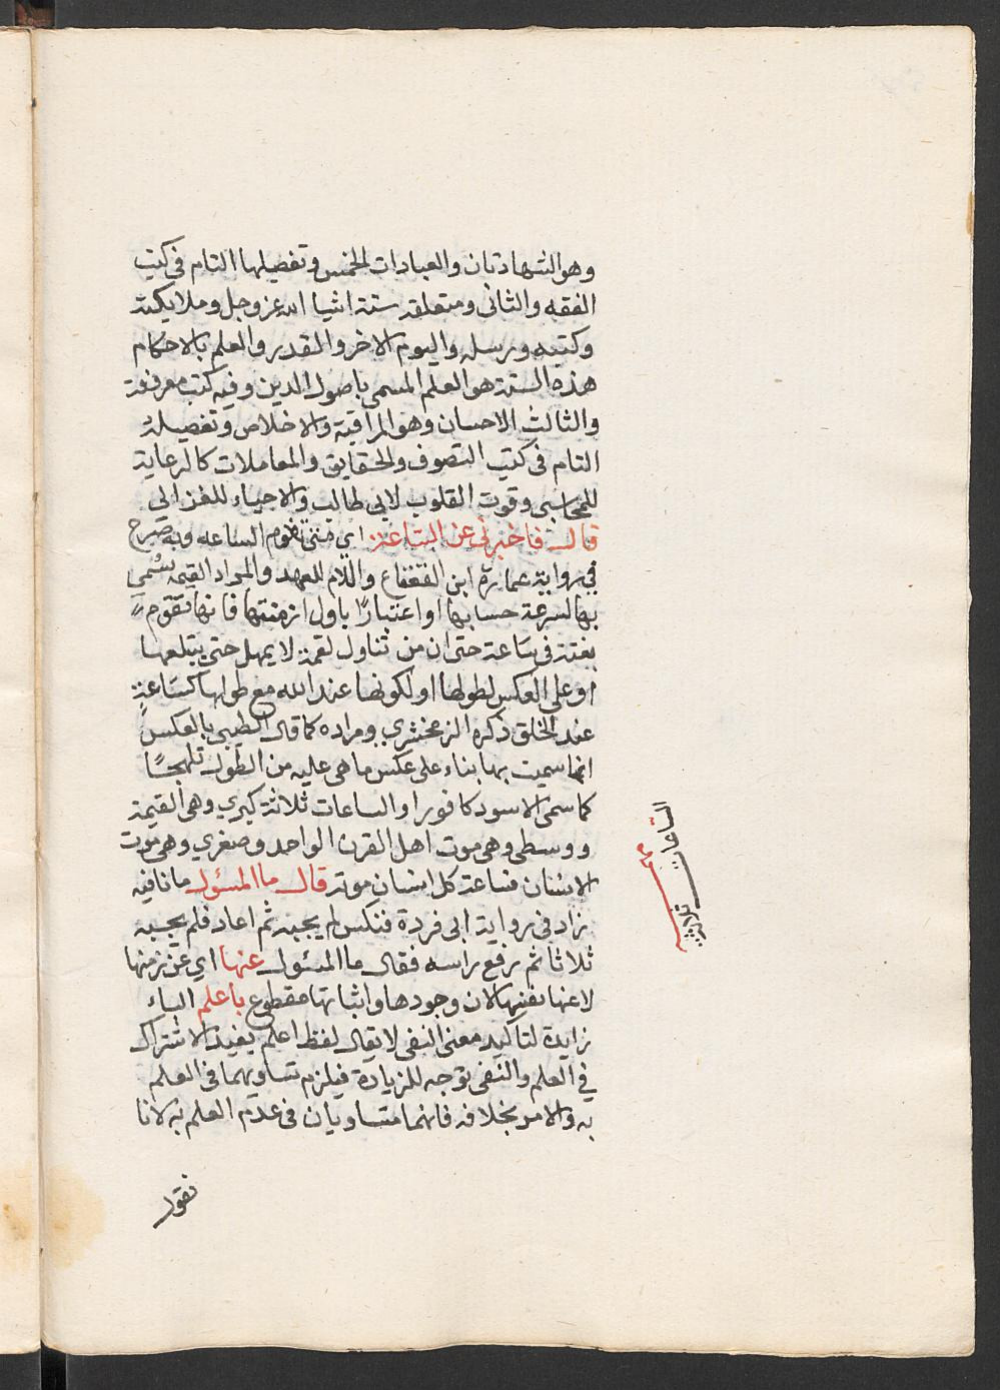 وهو الشهادتان والعبادات الخمس وتفصيلها التام في كتب
الفقه والثاني ومتعلقه ستة اشيا الله عز وجل وملايكته
وكتبه ورسله واليوم الاخر والقدر والعلم بالاحكام
هذه الستة هو العلم المسمى باصول الدين وفيه كتب معروفة
والثالث الاحسان وهو المراقبة والاخلاص وتفصيله
التام في كتب التصوف والحقايق والمعاملات كالرعاية
للمحاسبي وقوت القلوب لابي طالب والاحياء للغزالي
قال فاخبرني عن الساعة اي متى تقوم الساعه وبه صرح
في رواية عمارة ابن القعقاع واللام للعهد والمراد القيمه سمي
بها لسرعة حسابها او اعتبارًا باول ازمنتها فانها تقوم
بغتة في ساعة حتى ان من تناول لقمة لا يمهل حتى يبتلعها
او على العكس لطولها او لكونها عند الله مع طولها كساعةٍ
عند الخلق ذكره الزمخشري ومراده كما قال الطيبي بالعكس
انما سميت بها بناء على عكس ما هي عليه من الطول تلميحًا
كما سمى الاسود كافورا والساعات ثلاثة كبري وهى القيمة
ووسطى وهى موت اهل القرن الواحد وصغري وهى موت
الانسان فساعة كل انسان موته قال ما المسئول ما نافيه
زاد في رواية ابى فروة فنكس لم يجبه ثم اعاد فلم يجبه
ثلاثا ثم رفع راسه فقال ما المسئول عنها اي عن زمنها
لا عنها نفسها لان وجودها واثباتها مقطوع باعلم الباء
زايدة لتاكيد معنى النفى لا يقال لفظ اعلم يفيد الاشتراك
في العلم والنفى توجه للزيادة فيلزم تساويهما في العلم
به والامر بخلافه فانهما متساويان في عدم العلم به لانا
نقول
الساعات
ثلاثة